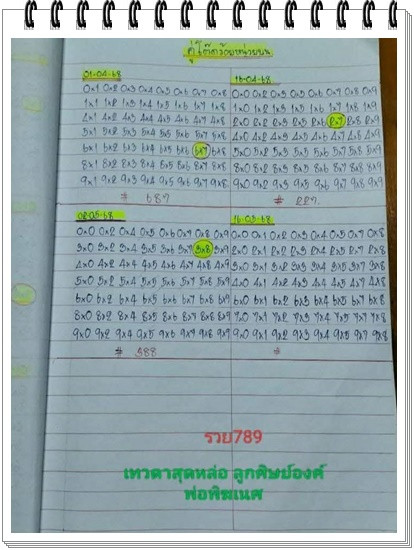 คู่โต๊ดร้อยหน่วยบน
01-04-68
0x1 0x2 0x3 0x4 0x5 0x6 0x7 0x8
1x1 1x2 1x3 1x4 1x5 1x6 1x7 1x8
4x1 4x2 4x3 4x4 4x5 4x6 4x7 4x8
5x1 5x2 5x3 5x4 5x5 5x6 5x7 5x8
6x1 6x2 6x3 6x4 6x5 6x6 6x7 6x8
8x1 8x2 8x3 8x4 8x5 8x6 8x7 8x8
9x1 9x2 9x3 9x4 9x5 9x6 9x7 9x8
# 687
16-04-68
0x0 0x2 0x3 0x5 0x6 0x7 0x8 0x9
1x0 1x2 1x3 1x5 1x6 1x7 1x8 1x9
2x0 2x2 2x3 2x5 2x6 2x7 2x8 2x9
4x0 4x2 4x3 4x5 4x6 4x7 4x8 4x9
5x0 5x2 5x3 5x5 5x6 5x7 5x8 5x9
8x0 8x2 8x3 8x5 8x6 8x7 8x8 8x9
9x0 9x2 9x3 9x5 9x6 9x7 9x8 9x9
# 227
02-05-68
0x0 0x2 0x4 0x5 0x6 0x7 0x8 0x9
3x0 3x2 3x4 3x5 3x6 3x7 3x8 3x9
4x0 4x2 4x4 4x5 4x6 4x7 4x8 4x9
5x0 5x2 5x4 5x5 5x6 5x7 5x8 5x9
6x0 6x2 6x4 6x5 6x6 6x7 6x8 6x9
8x0 8x2 8x4 8x5 8x6 8x7 8x8 8x9
9x0 9x2 9x4 9x5 9x6 9x7 9x8 9x9
# 388
16-05-68
0x0 0x1 0x2 0x3 0x4 0x5 0x7 0x8
2x0 2x1 2x2 2x3 2x4 2x5 2x7 2x8
3x0 3x1 3x2 3x3 3x4 3x5 3x7 3x8
4x0 4x1 4x2 4x3 4x4 4x5 4x7 4x8
6x0 6x1 6x2 6x3 6x4 6x5 6x7 6x8
7x0 7x1 7x2 7x3 7x4 7x5 7x7 7x8
9x0 9x1 9x2 9x3 9x4 9x5 9x7 9x8
#
รวย789
เทวดาสุดหล่อ ลูกศิษย์องค์
พ่อพิฆเนศ